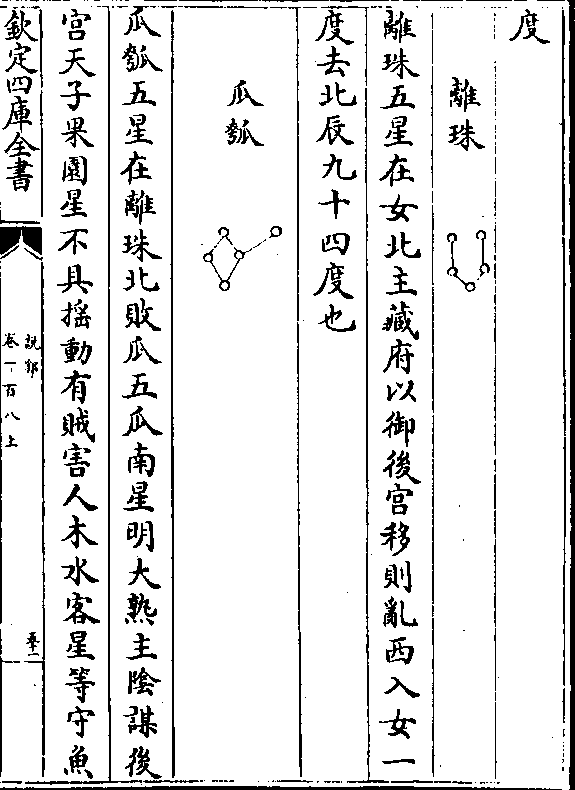 度
離珠
離珠五星在女北主藏府以御後宮移則亂西入女一
度去北辰九十四度也
瓜瓠
瓜瓠五星在離珠北敗瓜五瓜南星明大熟主陰謀後
宮天子果園星不具揺動有賊害人木水客星等守魚
欽定四庫全書
說郛
卷一百八上